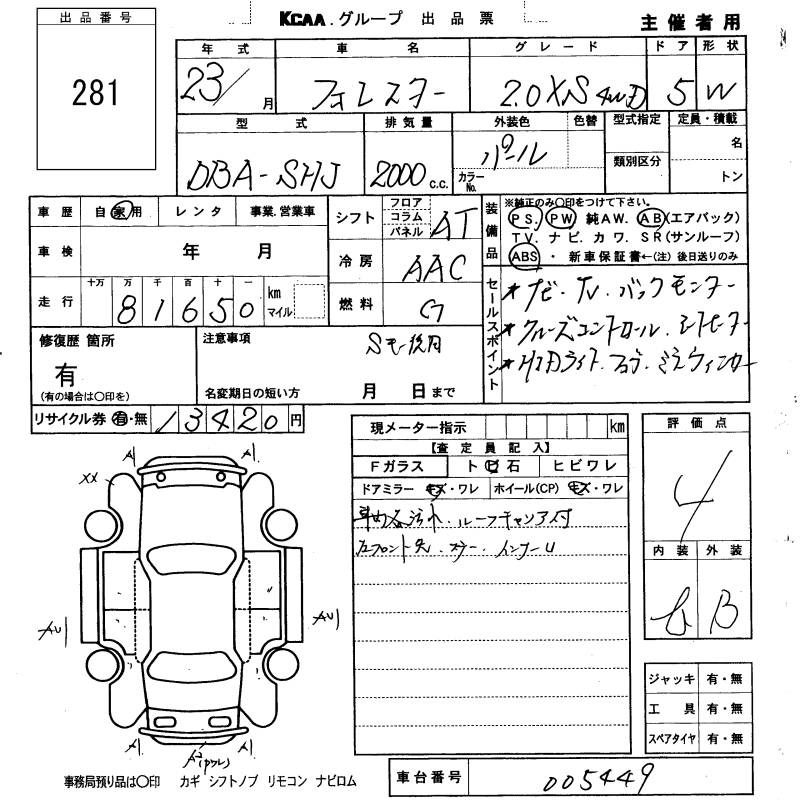 出品番号
281
KCAA.グループ 出品票
主催者用
年式 車名 グレード ドア 形状
23/月 フォレスター 2.0XS 4WD 5 W
型式 排気量 外装色 色替 型式指定 定員・積載
DBA-SHJ 2000 c.c. パール カラーNo. 類別区分 名 トン
車歴 自家用 レンタ 事業.営業車
車検 年 月
走行 十万 万 千 百 十 一 km マイル
81650
シフト フロア コラム パネル AT
冷房 AAC
燃料 G
装備品 ※純正のみ〇印をつけて下さい。
PS. PW 純AW. AB(エアバック)
TV. ナビ. カワ. SR(サンルーフ)
ABS ・ 新車保証書←(注) 後日送りのみ
セールスポイント
*ナビ・TV・バックモニター
*クルーズコントロール シートヒーター
*HIDライト フォグ ミラウィンカー
修復歴 箇所
有
(有の場合は〇印を)
注意事項
名変期日の短い方 月 日まで
リサイクル券 有・無 13420円
現メーター指示 km
【査定員記入】
Fガラス トビ石 ヒビワレ
ドアミラー キズ・ワレ ホイール(CP) キズ・ワレ
車内 汚れ・ルーフキャリア付
インナーU
評価点
4
内装 外装
B
XX A1 A1
AU1 AU1
A1 A1
ジャッキ 有・無
工具 有・無
スペアタイヤ 有・無
事務局預り品は〇印 カギ シフトノブ リモコン ナビロム
車台番号 005449